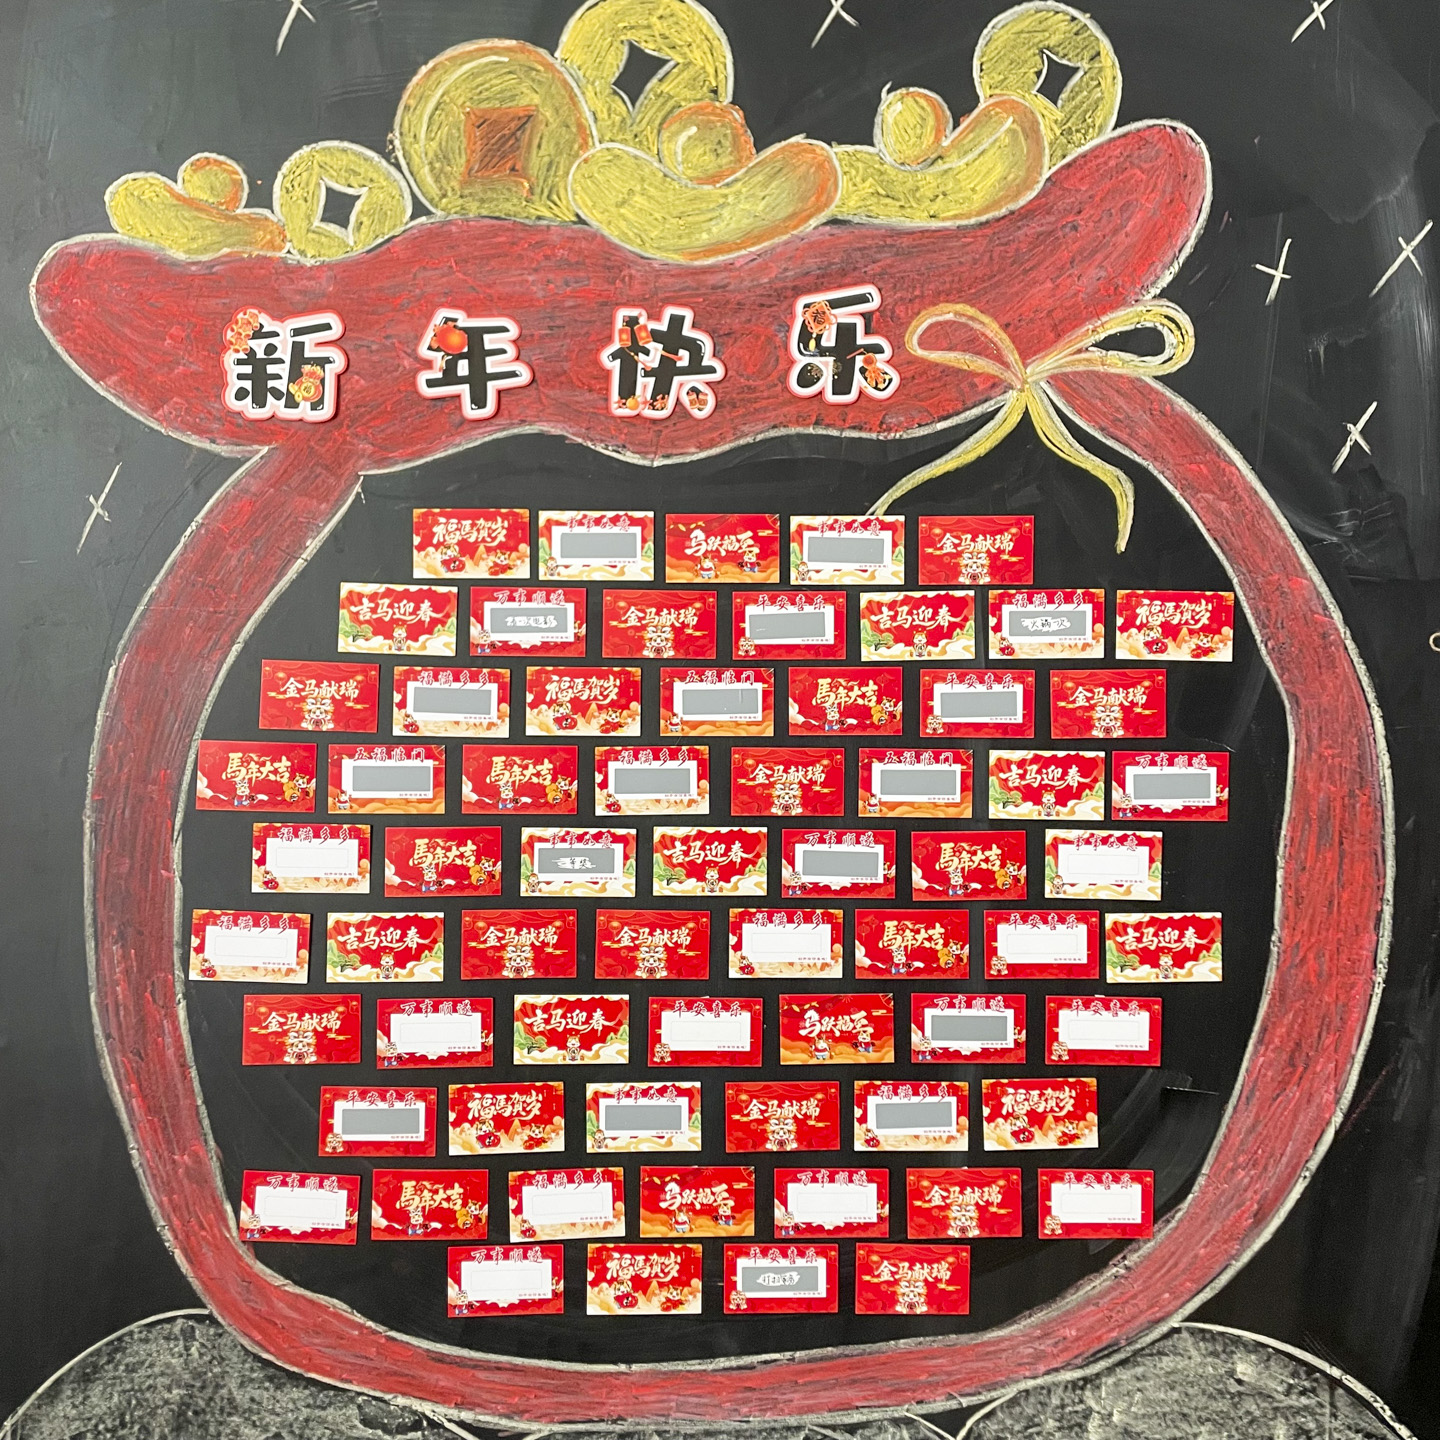 新年快乐
福馬贺岁 事事如意 马跃福至 事事如意 金马献瑞
吉马迎春 万事顺遂 金马献瑞 平安喜乐 吉马迎春 福满多多 火锅一次 福馬贺岁
金马献瑞 福满多多 福馬贺岁 五福临门 馬年大吉 平安喜乐 金马献瑞
馬年大吉 五福临门 馬年大吉 福满多多 金马献瑞 五福临门 吉马迎春 万事顺遂
福满多多 馬年大吉 事事如意 一等奖 吉马迎春 万事顺遂 馬年大吉 事事如意
福满多多 吉马迎春 金马献瑞 金马献瑞 福满多多 馬年大吉 平安喜乐 吉马迎春
金马献瑞 万事顺遂 吉马迎春 平安喜乐 马跃福至 万事顺遂 平安喜乐
平安喜乐 福馬贺岁 事事如意 金马献瑞 福满多多 福馬贺岁
万事顺遂 馬年大吉 福满多多 马跃福至 万事顺遂 金马献瑞 平安喜乐
万事顺遂 福馬贺岁 平安喜乐 金马献瑞